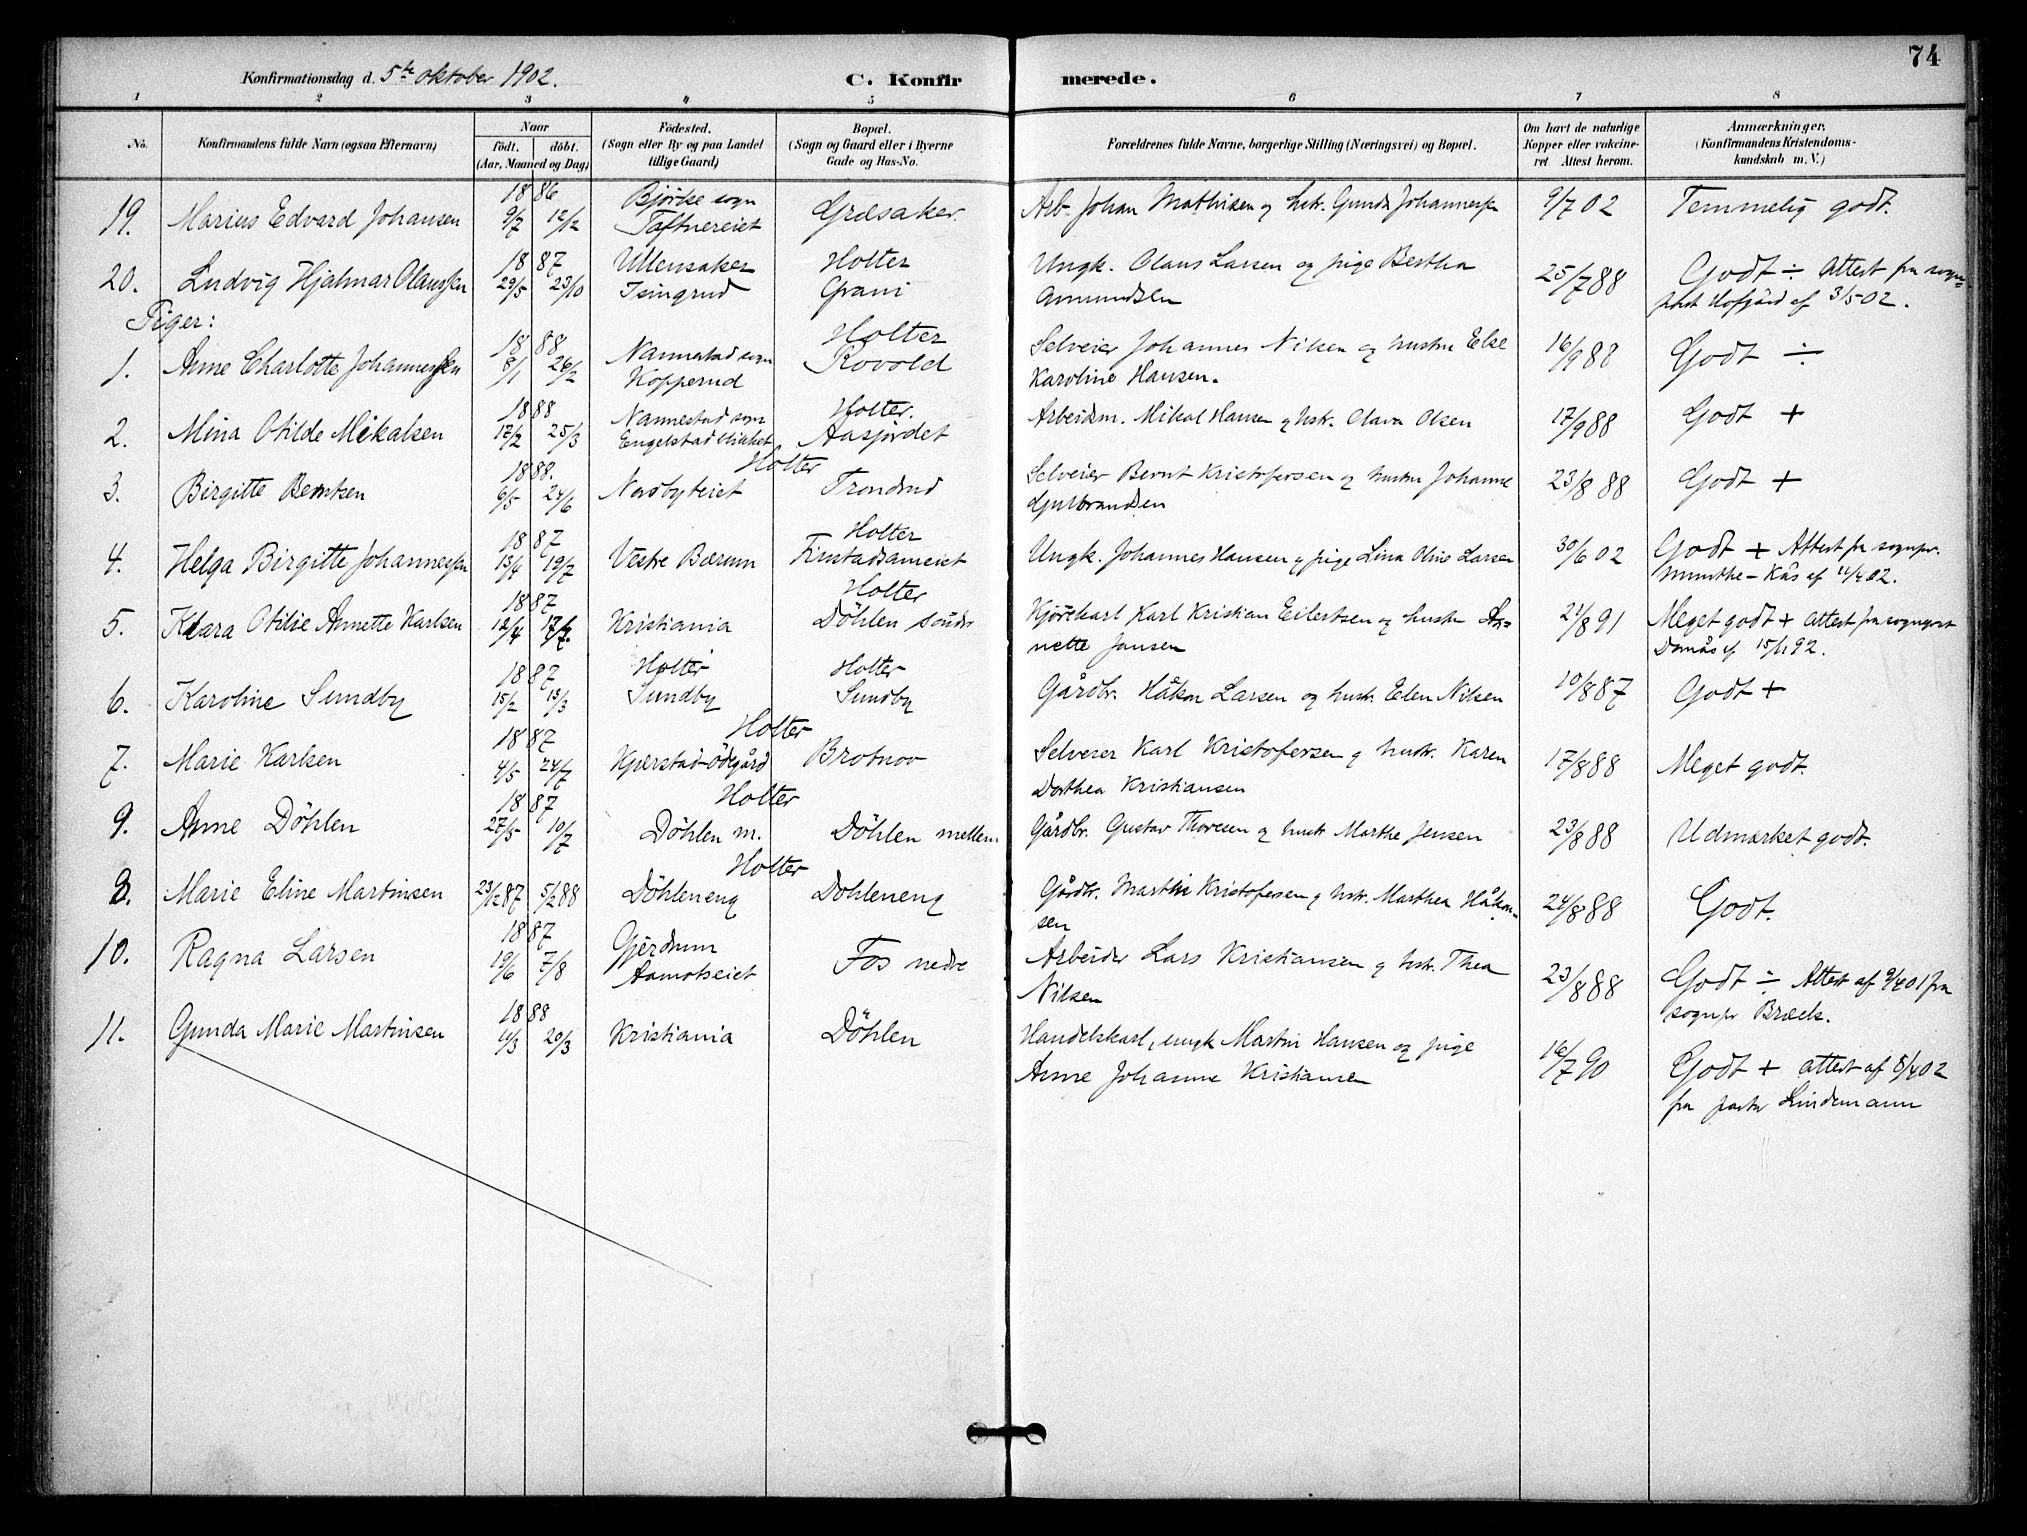 74
Konfirmationsdag d. 5te oktober 1902.
C. Konfirmerede.
1 2 3 4 5 6 7 8
No. Konfirmandens fulde Navn (ogsaa Efternavn) Naar født. døbt. (Aar, Maaned og Dag) Fødested. (Sogn eller By og paa Landet tillige Gaard) Bopæl. (Sogn og Gaard eller i Byerne Gade og Hus-No. Forældrenes fulde Navne, borgerlige Stilling (Næringsvei) og Bopæl. Om havt de naturlige Kopper eller vakcineret. Attest herom. Anmærkninger. (Konfirmandens Kristendomskundskab m. V.)
1886 Bjørke sogn
19. Marius Edvard Johansen 9/7 12/12 Græsaker. Arb. Johan Mathisen og hstr. Gunda Johannesen 9/7 02 Temmelig godt.
1887 Ullensaker Holter Ungk. Olaus Larsen og pige Bertha
20. Ludvig Hjalmar Olaussen 29/5 23/10 Isingrud Grani Amundsen 25/7 88 Godt ÷ Attest fra sogneprest Hofgård af 3/5 02.
Piger:
1888 Nannestad sogn Holter Selveier Johannes Nilsen og hustru Else
1. Anne Charlotte Johannessen 8/1 26/2 Kopperud Rovold Karoline Hansen. 16/9 88 Godt ÷
1888 Nannestad sogn Holter.
2. Mina Otilde Mikalsen 17/2 25/3 Aasjordet Arbeidsm. Mikal Hansen og hstr. Olava Olsen 17/9 88 Godt +
1888. Holter Selveier Bernt Kristofersen og hustru Johanne
3. Birgitte Berntsen 6/5 24/6 Nordbyeiet Trondrud Gulbrandsen 23/8 88 Godt +
1887 Holter
4. Helga Birgitte Johannesen 13/4 19/7 Vestre Bærum Ungk. Johannes Hansen og pige Lina Oline Larsen 30/6 02 Godt + Attest fra sognepr.
Munthe-Kås af 11/4 02.
1887 Holter
5. Klara Otilie Annette Karlsen 12/4 Kristiania Döhlen söndr Kjørekarl Karl Kristian Eilertsen og hustr An=
nette Jansen 21/8 91 Meget godt + Attest fra sogneprest
15/1 92.
1887 Holter Holter
6. Karoline Sundby 15/2 13/3 Sundby Sundby Gårdbr. Håkon Larsen og hustr. Elen Nilsen 10/8 87 Godt +
1887 Holter Selveier Karl Kristofersen og hustr. Karen
7. Marie Karlsen 4/5 24/7 Kjerstad-ödegård Brotnov Dorthea Kristiansen 17/8 88 Meget godt.
1887 Holter
9. Anne Döhlen 27/5 10/7 Döhlen m. Döhlen mellem Gårdbr. Gustav Thoresen og hustr Marthe Jensen 23/8 88 Udmærket godt.
Holter
8. Marie Eline Martinsen 23/12 87 5/2 88 Döhleneng Döhleneng Gårdbr. Martin Kristofersen og hstr. Marthea Håkon-
sen 24/8 88 Godt.
1887 Gjerdrum
10. Ragna Larsen 19/6 7/8 Aamotseiet Fos nedre Arbeider Lars Kristiansen og hstr. Thea
Nilsen 23/8 88 Godt ÷ Attest af 9/4 01 fra
sognepr Bræck.
1888
11. Gunda Marie Martinsen 20/3 Kristiania Döhlen Handelskarl, ungk Martin Hansen og pige
Anne Johanne Kristiansen 16/7 90 Godt + attest af 8/4 02
fra pastor Lindemann